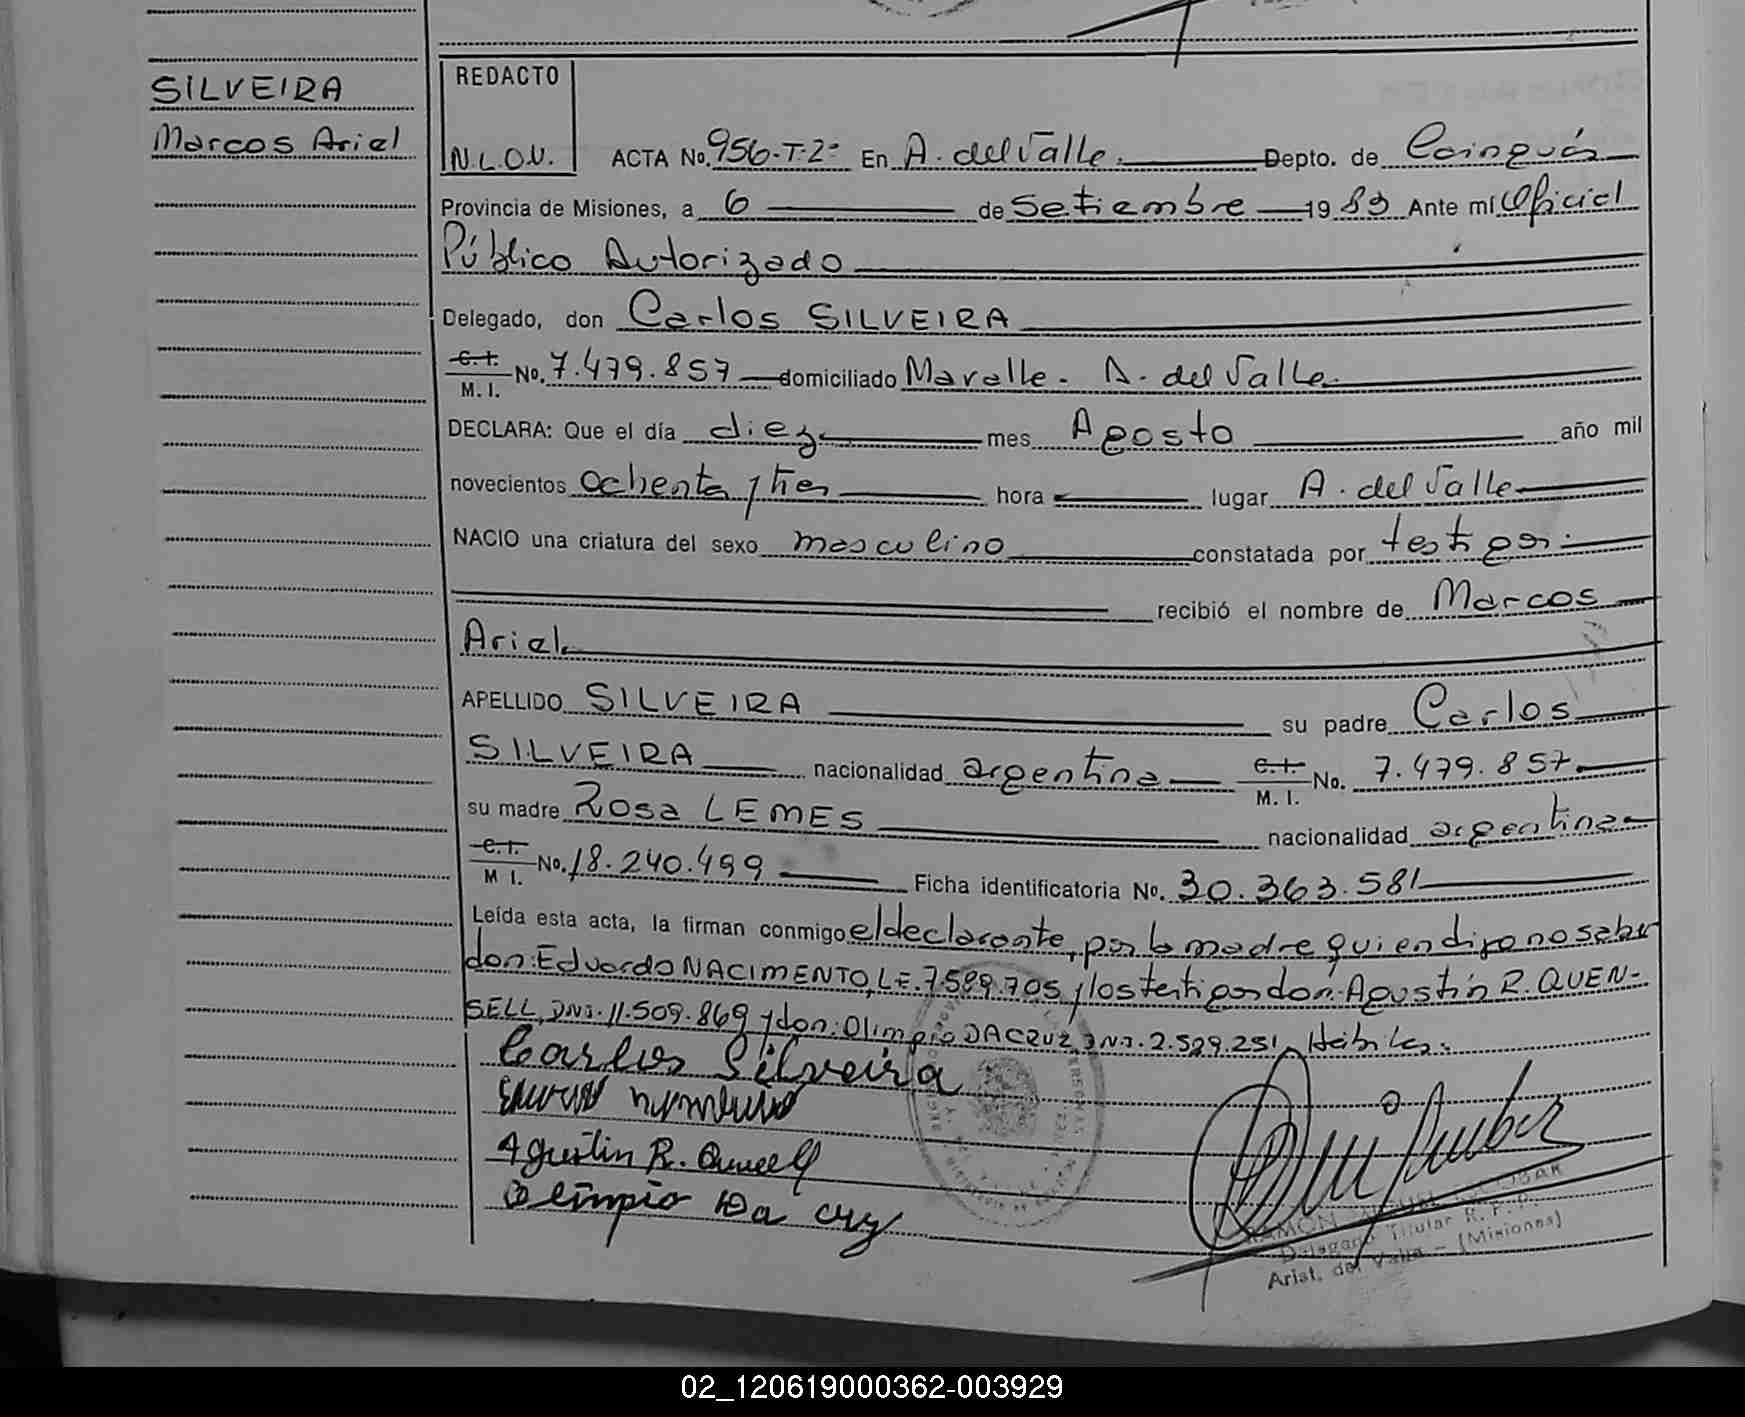 SILVEIRA
Marcos Ariel
REDACTO
N.L.O.V.
ACTA No. 956-T-2º En A. del Valle. Depto. de Cainguás
Provincia de Misiones, a 6 de Setiembre 1983 Ante mí Oficial
Público Autorizado
Delegado, don Carlos SILVEIRA
C.I. M.I. No. 7.479.857 domiciliado Maralle. A. del Valle.
DECLARA: Que el día diez mes Agosto año mil
novecientos ochenta y tres hora lugar A. del Valle
NACIO una criatura del sexo masculino constatada por testigos.
recibió el nombre de Marcos
Ariel.
APELLIDO SILVEIRA su padre Carlos
SILVEIRA nacionalidad argentina C.I. M.I. No. 7.479.857.
su madre Rosa LEMES nacionalidad argentina
C.I. M I. No. 18.240.499 Ficha identificatoria No. 30.363.581
Leída esta acta, la firman conmigo el declarante, por la madre quien dijo no saber
don: Eduardo NACIMENTO, L.E. 7.589.705 y los testigos don: Agustín R. QUEN-
SELL, DNI. 11.509.869 y don: Olimpio DACRUZ, DNI. 2.529.251. Hábiles.
Carlos Silveira
Agustin R. Quensell
Olimpio Da Cruz
RAMON
Delegado Titular R. P. P.
Arist. del Valle - (Misiones)
02_120619000362-003929